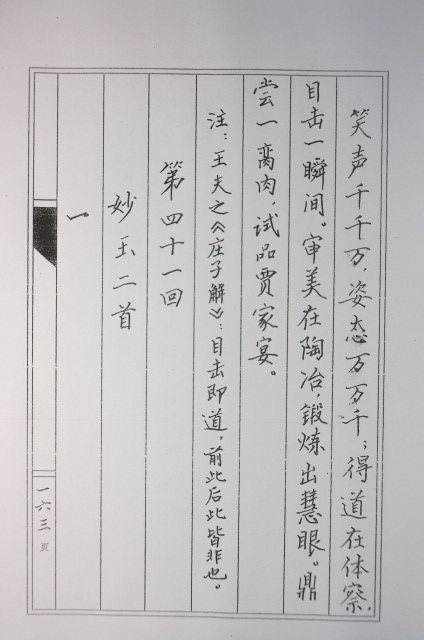 笑声千千万，姿态万万千；得道在体察，
目击一瞬间。审美在陶冶，锻炼出慧眼。鼎
尝一脔肉，试品贾家宴。
注：王夫之《庄子解》：目击即道，前此后此皆非也。
第四十一回
妙玉二首
一
一六三页